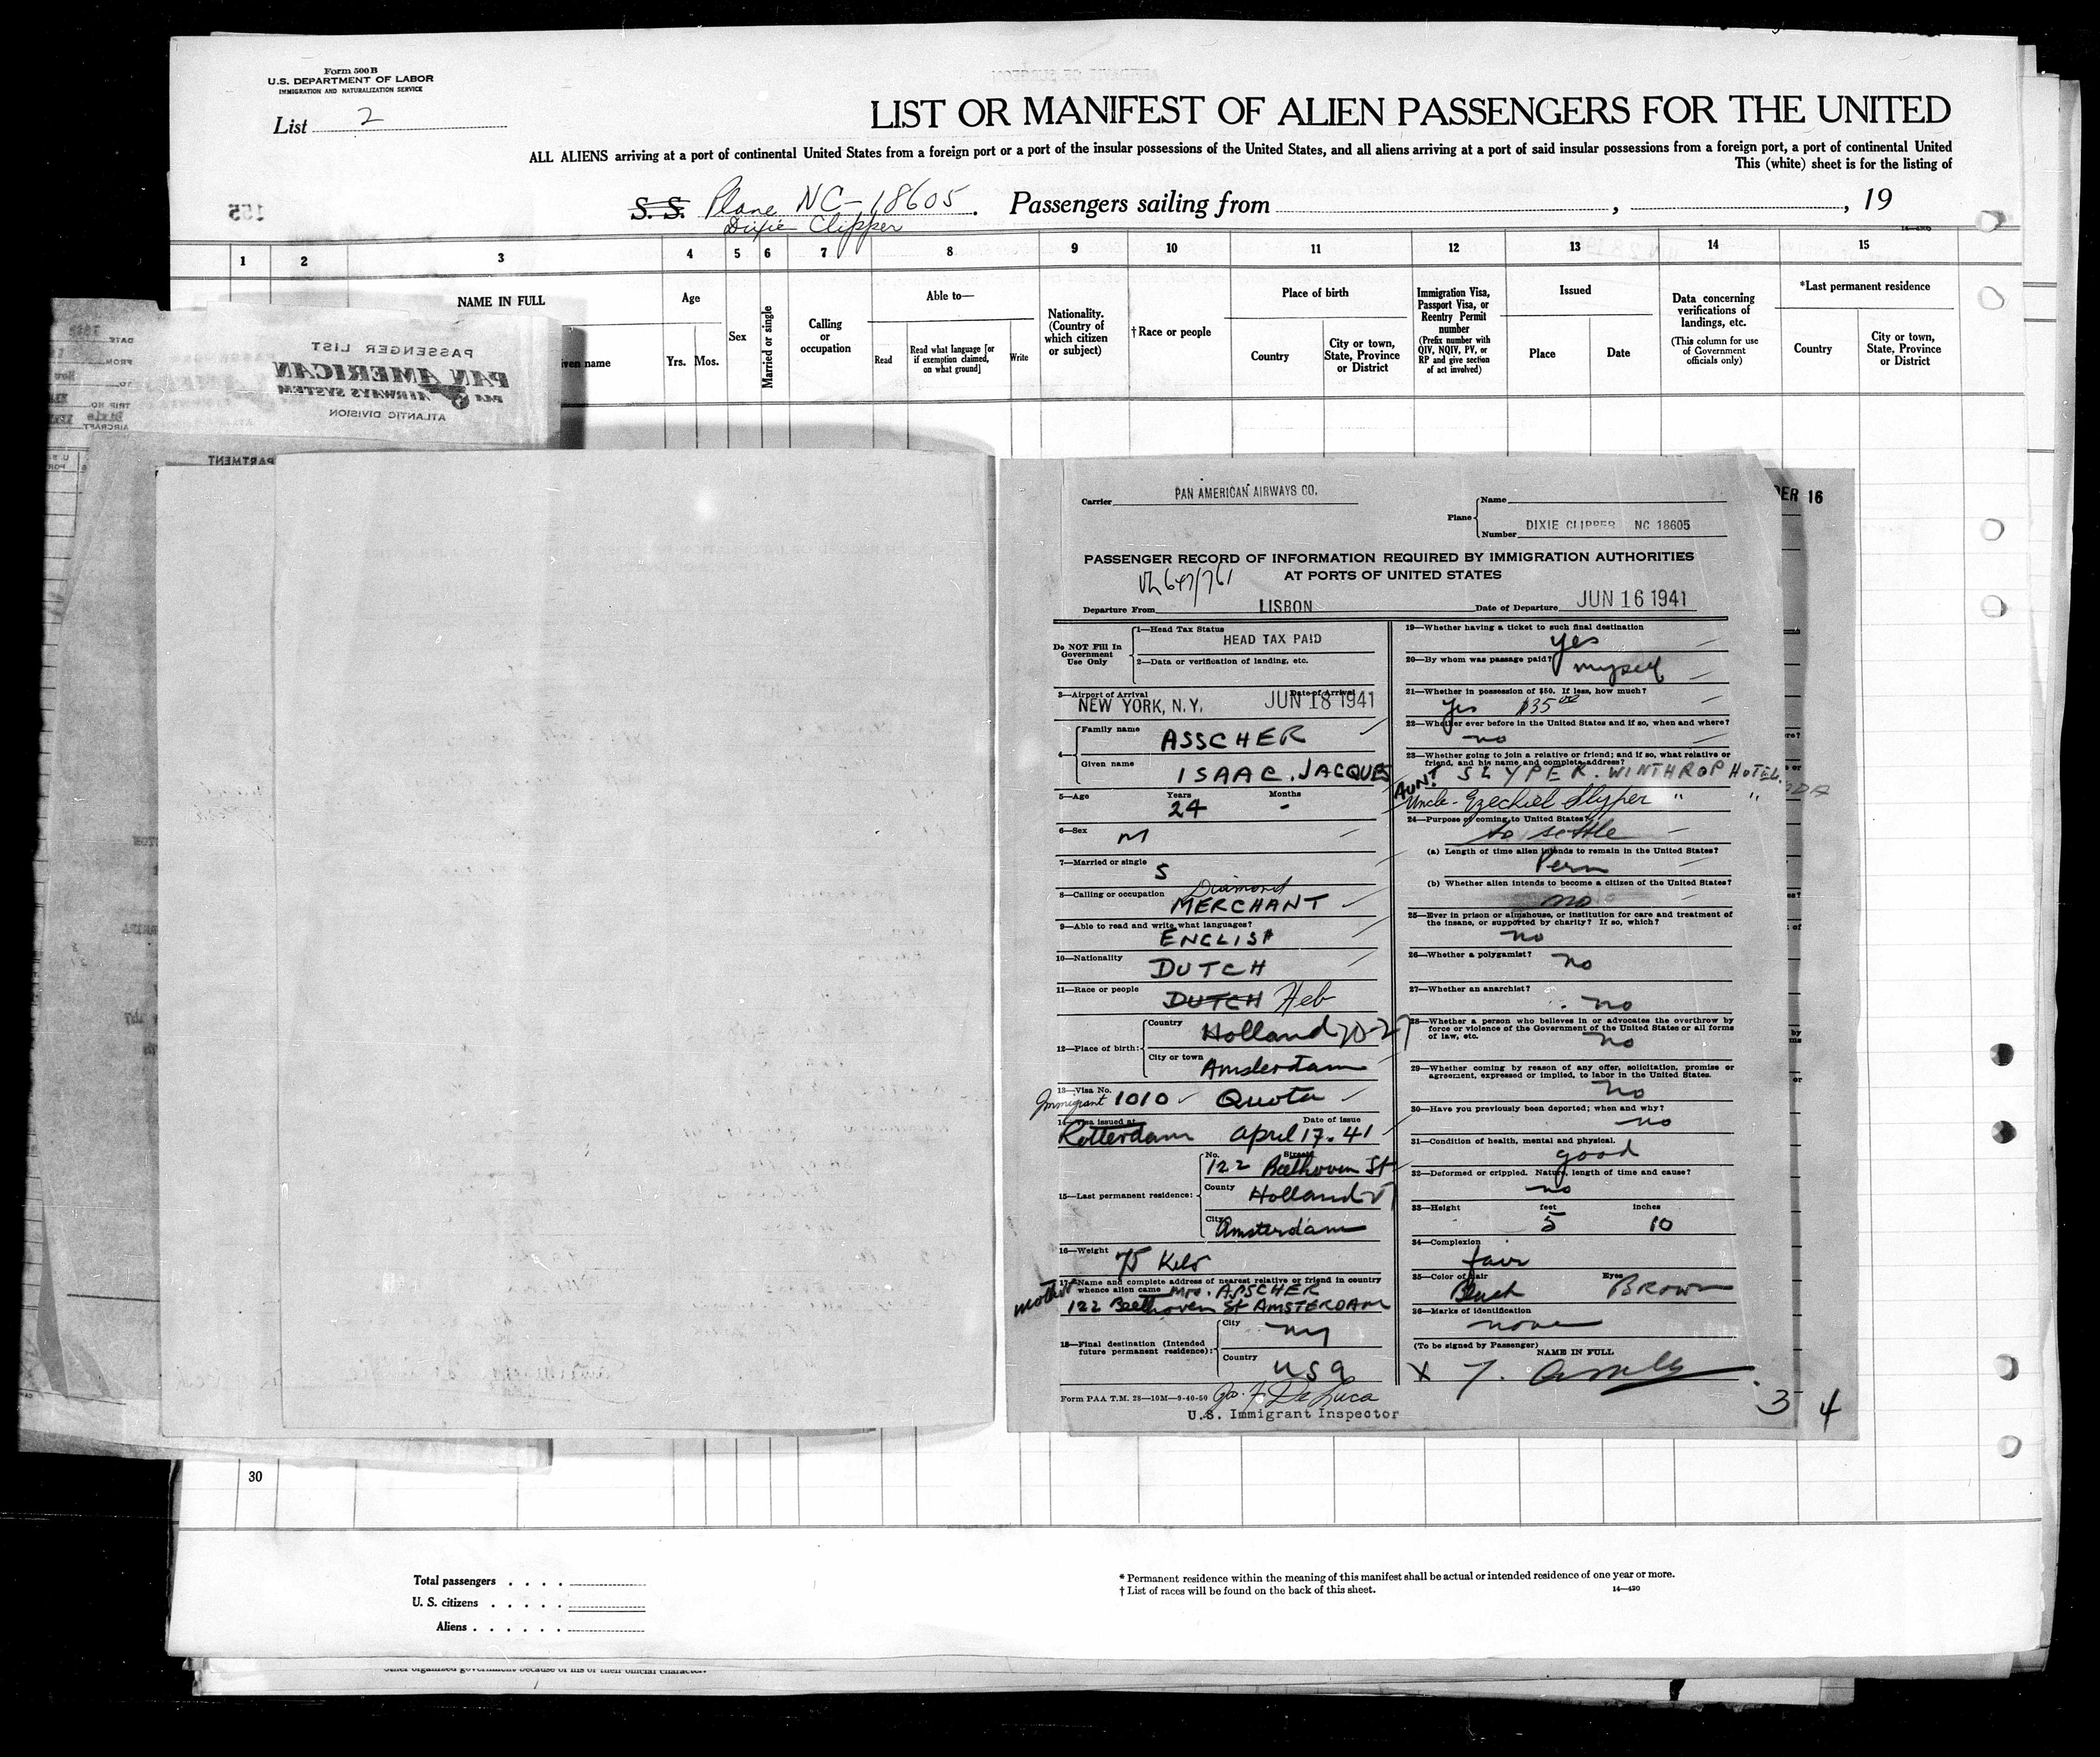 Form 500 B
U.S. DEPARTMENT OF LABOR
IMMIGRATION AND NATURALIZATION SERVICE
List 2
LIST OR MANIFEST OF ALIEN PASSENGERS FOR THE UNITED
ALL ALIENS arriving at a port of continental United States from a foreign port or a port of the insular possessions of the United States, and all aliens arriving at a port of said insular possessions from a foreign port, a port of continental United
This (white) sheet is for the listing of
155
S. S. Plane NC-18605. Passengers sailing from , , 19
Dixie Clipper
1 2 3 4 5 6 7 8 9 10 11 12 13 14 15
NAME IN FULL
Given name
Age
Yrs. Mos.
Sex
Married or single
Calling or occupation
Able to—
Read
Read what language [or if exemption claimed, on what ground]
Write
Nationality. (Country of which citizen or subject)
†Race or people
Place of birth
Country
City or town, State, Province or District
Immigration Visa, Passport Visa, or Reentry Permit number
(Prefix number with QIV, NQIV, PV, or RP and give section of act involved)
Issued
Place
Date
Data concerning verifications of landings, etc.
(This column for use of Government officials only)
*Last permanent residence
Country
City or town, State, Province or District
PASSENGER LIST
PAN AMERICAN
PAA AIRWAYS SYSTEM
ATLANTIC DIVISION
DATE
FROM
TO
TRIP NO.
Dixie
AIRCRAFT
PARTMENT
ER 16
Carrier PAN AMERICAN AIRWAYS CO.
Plane Name
Number DIXIE CLIPPER NC 18605
PASSENGER RECORD OF INFORMATION REQUIRED BY IMMIGRATION AUTHORITIES
AT PORTS OF UNITED STATES
Departure From LISBON Date of Departure JUN 16 1941
Do NOT Fill In Government Use Only
1—Head Tax Status HEAD TAX PAID
2—Data or verification of landing, etc.
3—Airport of Arrival Date of Arrival
NEW YORK, N.Y. JUN 18 1941
4— Family name ASSCHER
Given name ISAAC. JACQUES
5—Age Years Months
24 -
6—Sex M
7—Married or single S
8—Calling or occupation Diamond
MERCHANT
9—Able to read and write what languages?
ENGLISH
10—Nationality DUTCH
11—Race or people DUTCH Heb
12—Place of birth: Country Holland
City or town Amsterdam
13—Visa No.
Immigrant 1010 Quota
14—Visa issued at Date of issue
Rotterdam April 17. 41
15—Last permanent residence:
No. Street
122 Beethoven St
County Holland
City Amsterdam
16—Weight 75 Kilo
17—Name and complete address of nearest relative or friend in country
whence alien came Mrs. ASSCHER
mother
122 Beethoven St AMSTERDAM
18—Final destination (Intended future permanent residence):
City NY
Country USA
Form PAA T.M. 28—10M—9-40-50 Geo. F. De Luca
U.S. Immigrant Inspector
19—Whether having a ticket to such final destination
yes
20—By whom was passage paid? myself
21—Whether in possession of $50. If less, how much?
yes $35 00
22—Whether ever before in the United States and if so, when and where?
no
23—Whether going to join a relative or friend; and if so, what relative or
friend, and his name and complete address?
AUNT SLYPER. WINTHROP HOTEL.
Uncle - Ezechiel Slyper " "
24—Purpose of coming to United States?
to settle
(a) Length of time alien intends to remain in the United States?
Perm
(b) Whether alien intends to become a citizen of the United States?
no
25—Ever in prison or almshouse, or institution for care and treatment of
the insane, or supported by charity? If so, which?
no
26—Whether a polygamist? no
27—Whether an anarchist?
no
28—Whether a person who believes in or advocates the overthrow by
force or violence of the Government of the United States or all forms
of law, etc. no
29—Whether coming by reason of any offer, solicitation, promise or
agreement, expressed or implied, to labor in the United States.
no
30—Have you previously been deported; when and why?
no
31—Condition of health, mental and physical.
good
32—Deformed or crippled. Nature, length of time and cause?
no
33—Height feet inches
5 10
34—Complexion
fair
35—Color of Hair Eyes
Black BROWN
36—Marks of identification
none
(To be signed by Passenger)
NAME IN FULL
X
3 4
30
Total passengers
U. S. citizens
Aliens
* Permanent residence within the meaning of this manifest shall be actual or intended residence of one year or more.
† List of races will be found on the back of this sheet.
14—430
other organized government because of his or their official character.